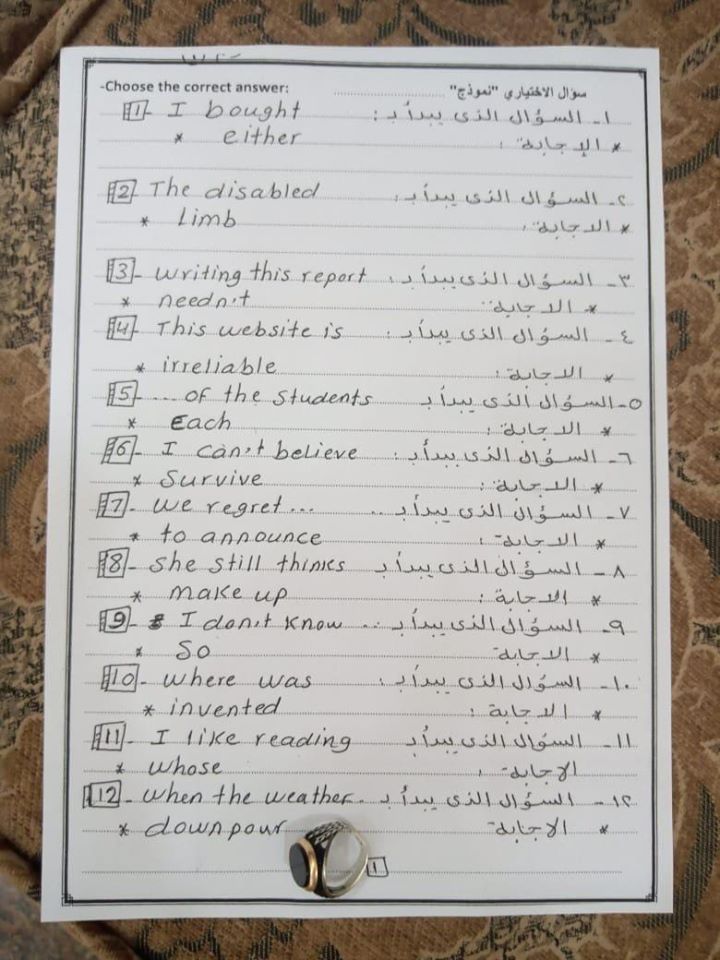 -Choose the correct answer: سؤال الاختياري "نموذج"
1- I bought ١- السؤال الذى يبدأ بـ :
* either * الإجابة :
2- The disabled ٢- السؤال الذى يبدأ بـ :
* Limb * الاجابة :
3- writing this report ٣- السؤال الذى يبدأ بـ :
* needn't * الاجابة :
4- This website is ٤- السؤال الذى يبدأ بـ :
* irreliable * الاجابة :
5- ... of the students ٥- السؤال الذى يبدأ بـ
* Each * الاجابة :
6- I can't believe ٦- السؤال الذى يبدأ بـ :
* Survive * الاجابة :
7- We regret ... ٧- السؤال الذى يبدأ بـ ..
* to announce * الاجابة :
8- She still thinks ٨- السؤال الذى يبدأ بـ
* make up * الاجابة :
9- I don't know .. ٩- السؤال الذى يبدأ بـ
* So * الاجابة
10- where was ١٠- السؤال الذى يبدأ بـ :
* invented * الاجابة :
11- I like reading ١١- السؤال الذى يبدأ بـ
* whose الإجابة :
12- when the weather. ١٢- السؤال الذى يبدأ بـ
* downpour * الاجابة
١